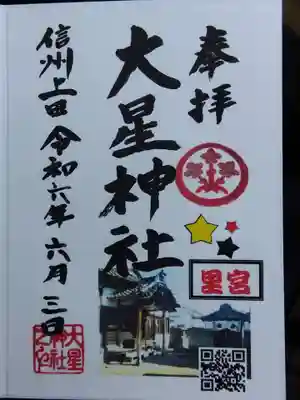 奉拝
里宮
大星神社
信州上田 令和六年六月三日
大星
神社
之印